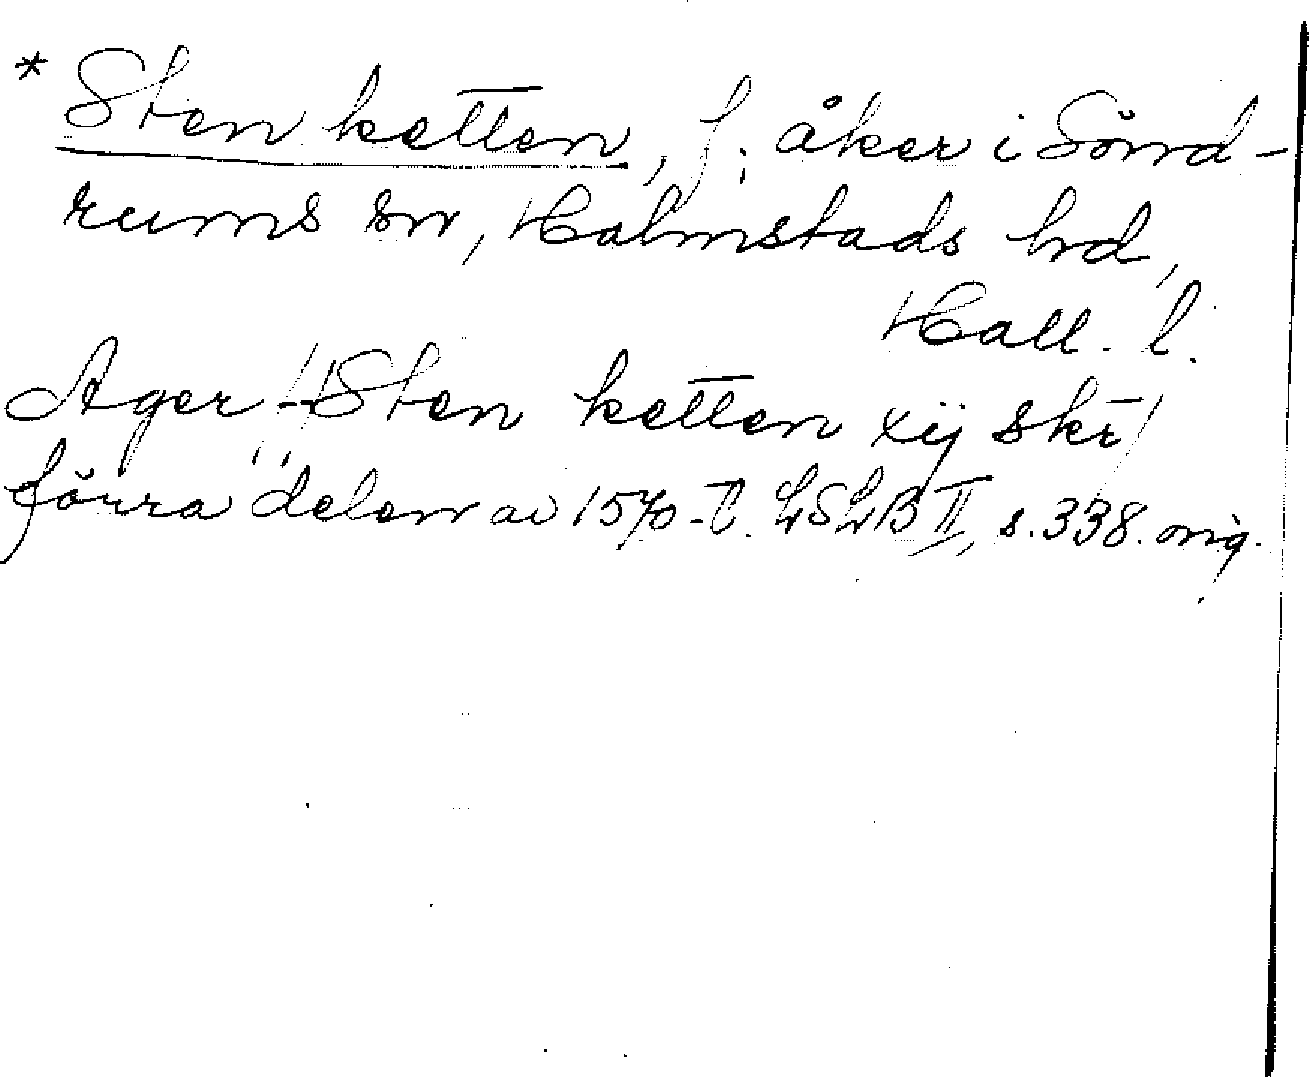 * Sten ketten, f. åker i Sönd-
rums sn, Halmstads hd,
Hall. l.
Ager: Sten ketten xij skr/
förra delen av 1570-t. LSLB II, s. 338. orig.